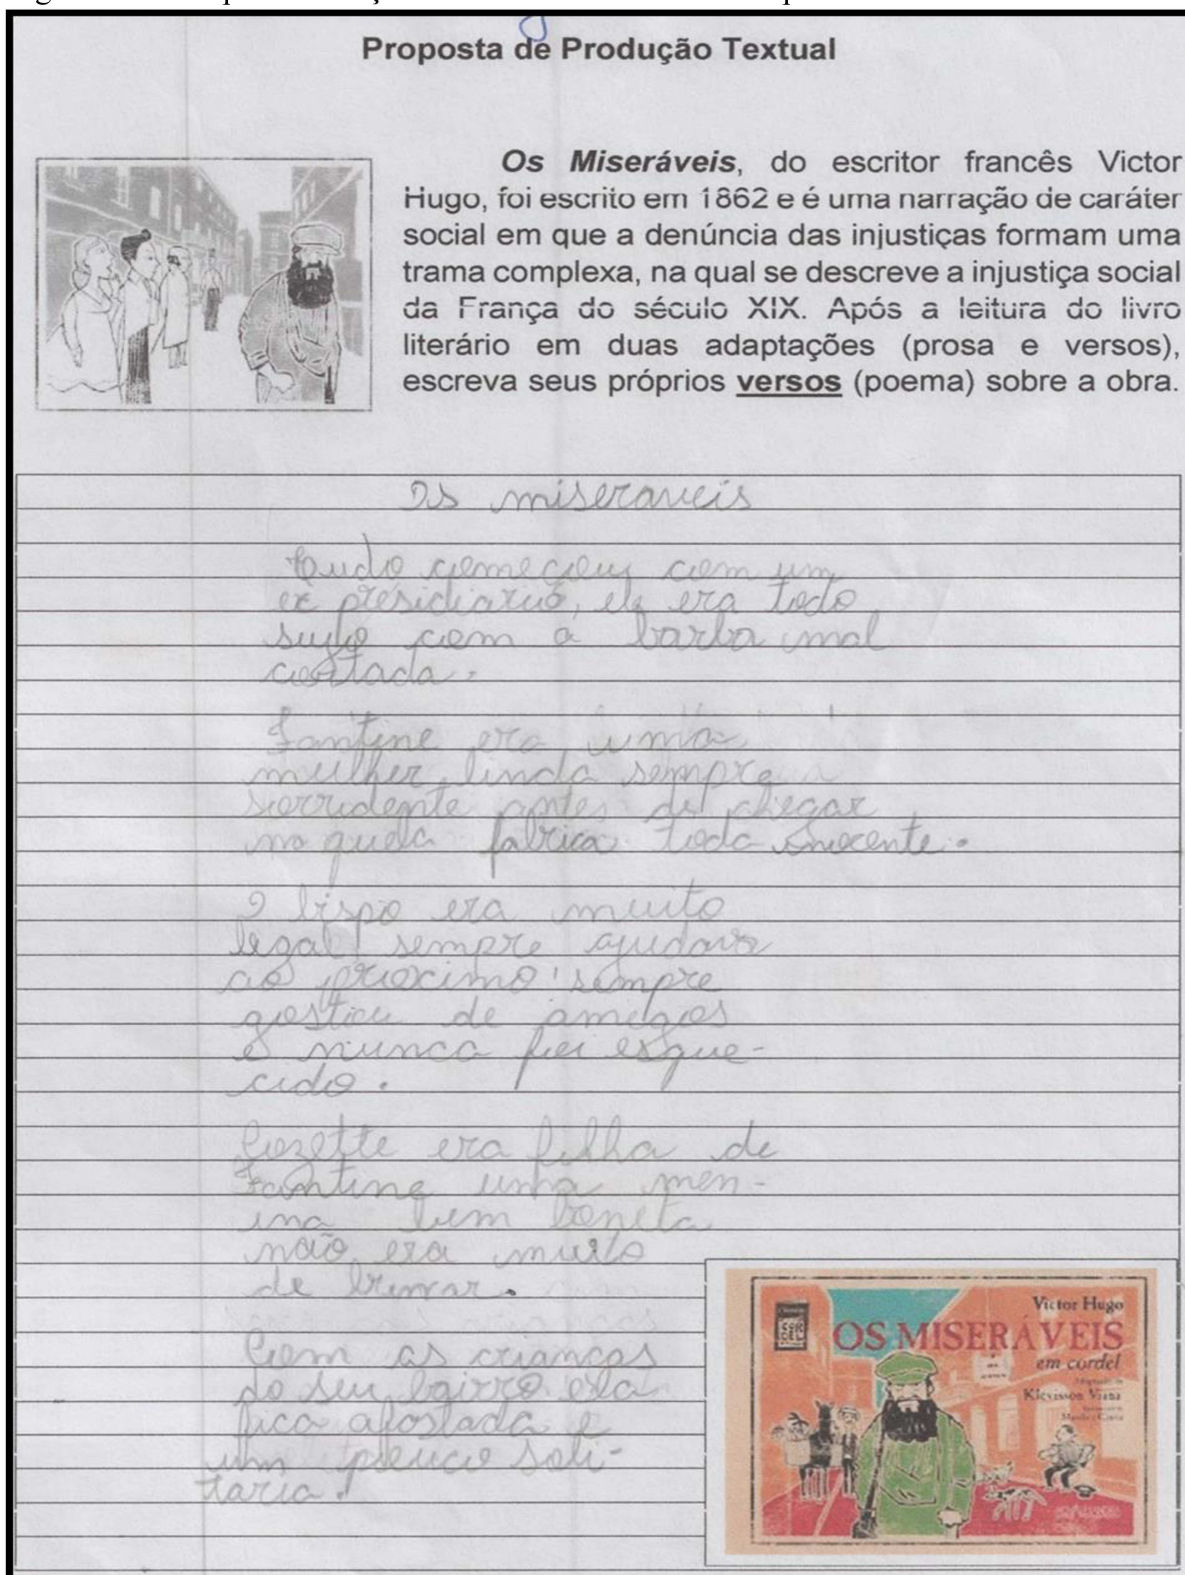 Proposta de Produção Textual
Os Miseráveis, do escritor francês Victor
Hugo, foi escrito em 1862 e é uma narração de caráter
social em que a denúncia das injustiças formam uma
trama complexa, na qual se descreve a injustiça social
da França do século XIX. Após a leitura do livro
literário em duas adaptações (prosa e versos),
escreva seus próprios versos (poema) sobre a obra.
Os miseraveis
Tudo começou com um
ex presidiario, ele era todo
sujo com a barba mal
cortada.
Fantine era uma
mulher linda sempre
sorridente antes de chegar
na quela fabrica toda inocente.
O bispo era muito
legal sempre ajudava
ao proximo sempre
gostou de amigos
e nunca foi esque-
cido.
Cozette era filha de
Fantine uma men-
ina bem bonita
não era muito
de brincar.
Com as crianças
do seu bairro ela
fica afastada e
um pouco soli-
taria.
Victor Hugo
OS MISERÁVEIS
em cordel
Klévisson Viana